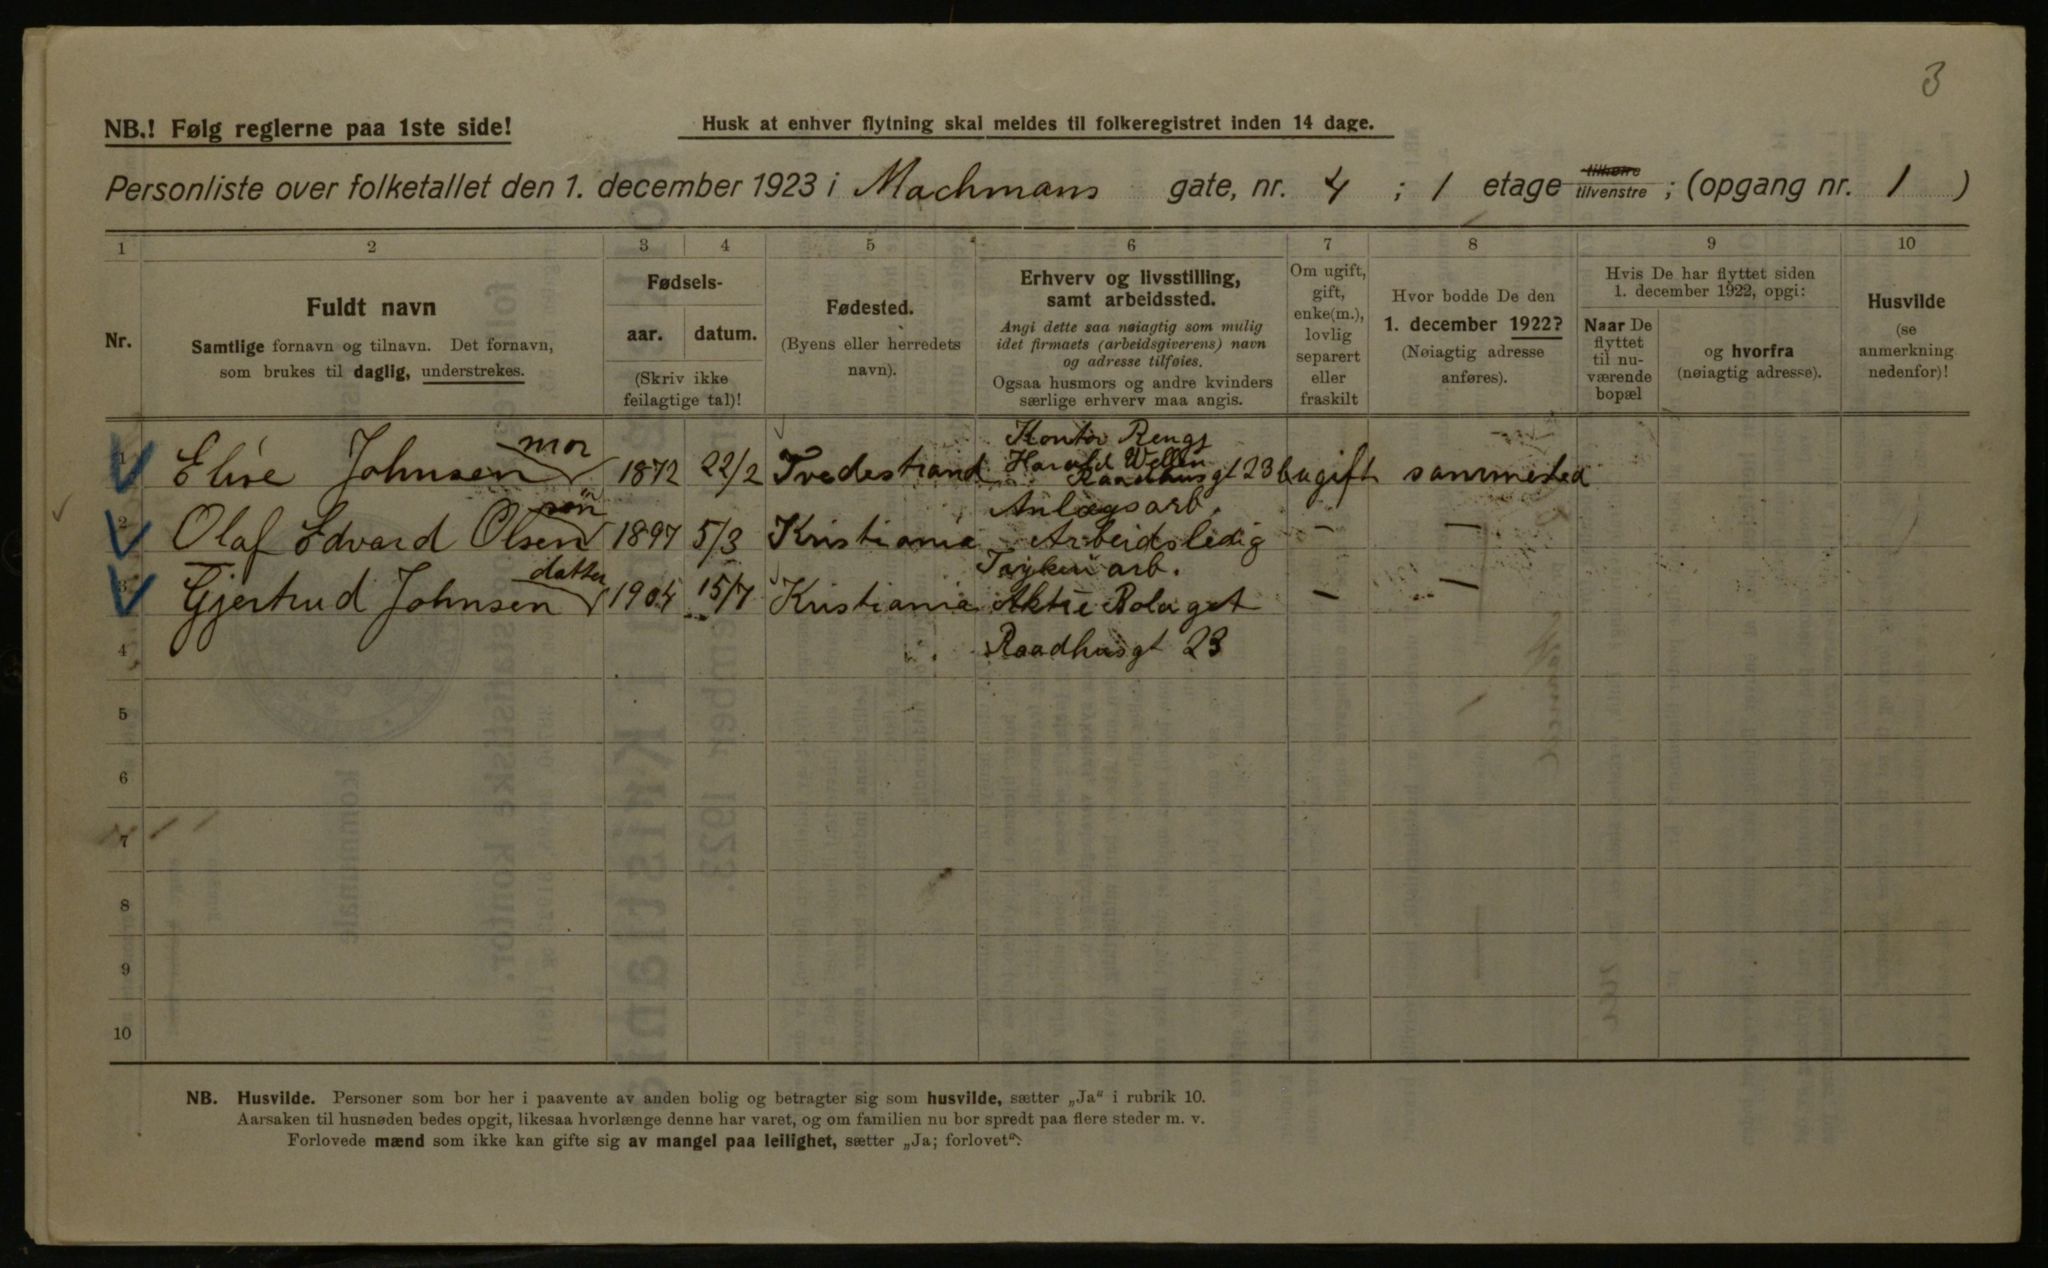 3
NB.! Følg reglerne paa 1ste side!
Husk at enhver flytning skal meldes til folkeregistret inden 14 dage.
Personliste over folketallet den 1. december 1923 i Machmans gate, nr. 4 ; 1 etage tilhøire tilvenstre ; (opgang nr. 1 )
1 2 3 4 5 6 7 8 9 10
Nr.
Fuldt navn
Samtlige fornavn og tilnavn. Det fornavn,
som brukes til daglig, understrekes.
Fødsels-
aar. datum.
(Skriv ikke
feilagtige tal)!
Fødested.
(Byens eller herredets
navn).
Erhverv og livsstilling,
samt arbeidssted.
Angi dette saa nøiagtig som mulig
idet firmaets (arbeidsgiverens) navn
og adresse tilføies.
Ogsaa husmors og andre kvinders
særlige erhverv maa angis.
Om ugift,
gift,
enke(m.),
lovlig
separert
eller
fraskilt
Hvor bodde De den
1. december 1922?
(Nøiagtig adresse
anføres).
Hvis De har flyttet siden
1. december 1922, opgi:
Naar De
flyttet
til nu-
værende
bopæl
og hvorfra
(nøiagtig adresse).
Husvilde
(se
anmerkning
nedenfor)!
mor Kontor Rengj
1 Elise Johnsen 1872 22/2 Tvedestrand Harald Raadhusgt 23 b ugift sammested
søn Anlægsarb.
2 Olaf Edvard Olsen 1897 5/3 Kristiania Arbeidsledig – –
datter arb.
3 Gjertrud Johnsen 1904 15/7 Kristiania Aktie Bolaget – –
4 Raadhusgt 23
5
6
7
8
9
10
NB. Husvilde. Personer som bor her i paavente av anden bolig og betragter sig som husvilde, sætter „Ja“ i rubrik 10.
Aarsaken til husnøden bedes opgit, likesaa hvorlænge denne har varet, og om familien nu bor spredt paa flere steder m. v.
Forlovede mænd som ikke kan gifte sig av mangel paa leilighet, sætter „Ja; forlovet“.